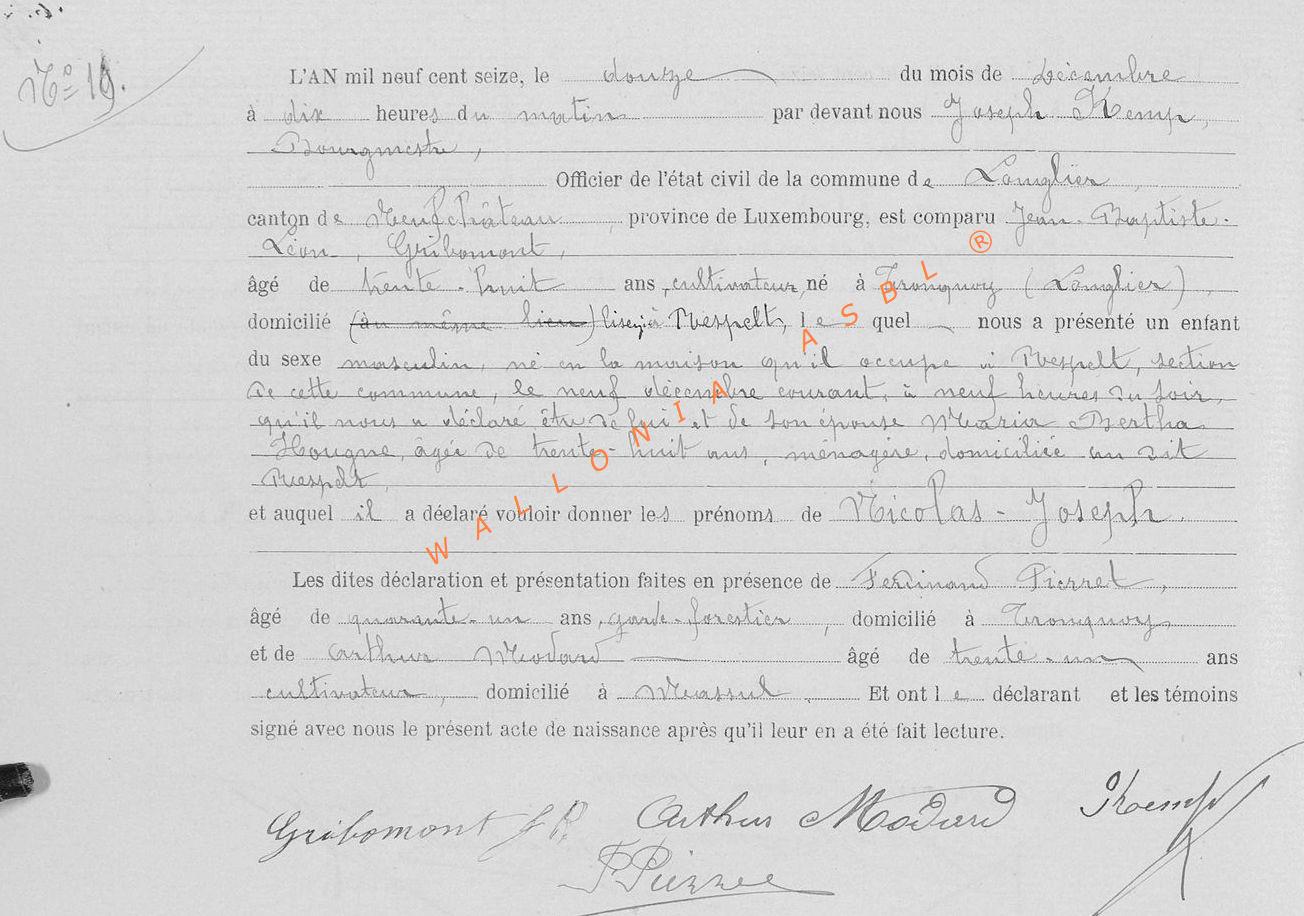 N° 19.
L'AN mil neuf cent seize, le douze du mois de Décembre
à dix heures du matin par devant nous Joseph Kemp,
Bourgmestre,
Officier de l'état civil de la commune de Longlier,
canton de Neufchâteau, province de Luxembourg, est comparu Jean-Baptiste-
Léon, Gribomont,
âgé de trente-huit ans, cultivateur, né à Tronquoy (Longlier),
domicilié (au même lieu) lisez: à Respelt, lequel nous a présenté un enfant
du sexe masculin, né en la maison qu'il occupe à Respelt, section
de cette commune, le neuf décembre courant, à neuf heures du soir,
qu'il nous a déclaré être de lui et de son épouse Maria Bertha
Hougne, âgée de trente-huit ans, ménagère, domiciliée au dit
Respelt,
et auquel il a déclaré vouloir donner les prénoms de Nicolas-Joseph
Les dites déclaration et présentation faites en présence de Ferdinand Pierret,
âgé de quarante-un ans, garde-forestier, domicilié à Tronquoy
et de Arthur Modard âgé de trente-un ans
cultivateur, domicilié à Massul. Et ont le déclarant et les témoins
signé avec nous le présent acte de naissance après qu'il leur en a été fait lecture.
Gribomont Arthur Modard Kemp
F Pierret
WALLONIA ASBL ®